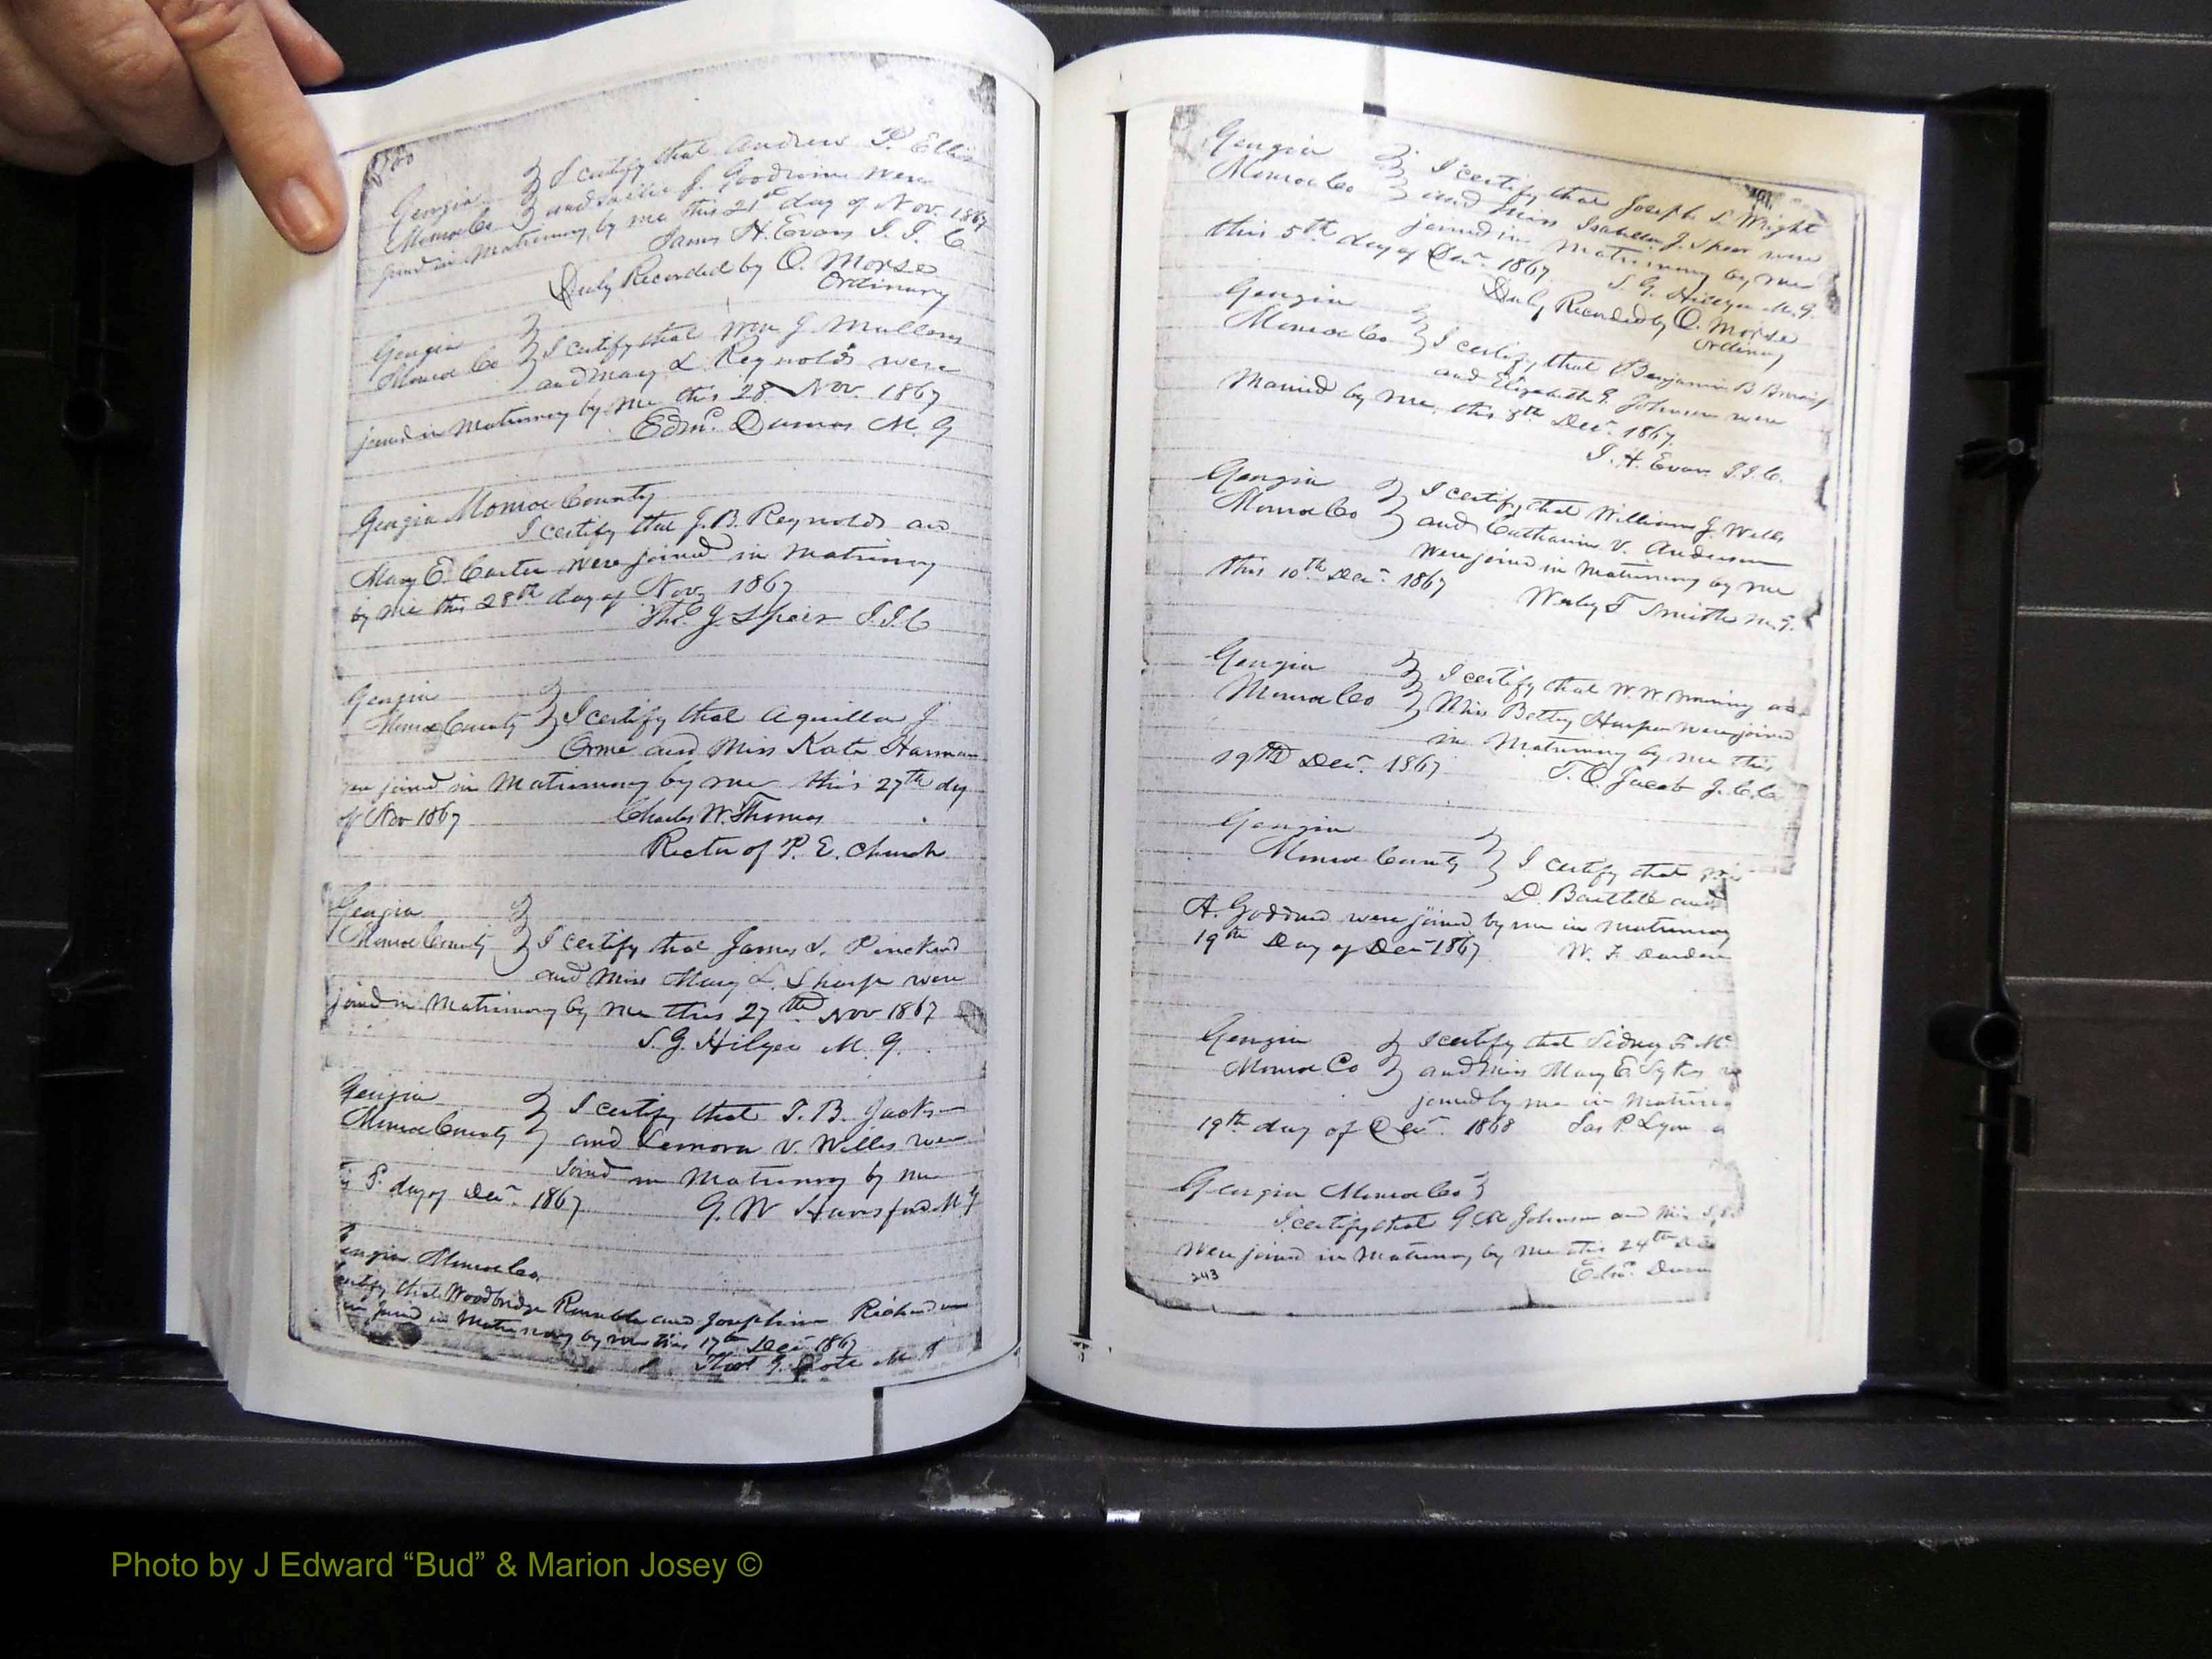 Georgia } I certify that Andrew P. Ellis
Monroe Co } and Sallie J. Goodwin were
joined in Matrimony by me this 21st day of Nov. 1867
James H. Evans J. I. C
Duly Recorded by O. Morse
Ordinary
Georgia }
Monroe Co } I certify that Wm J Mullens
and Mary L Reynolds were
joined in Matrimony by me this 28 Nov. 1867
Edmd. Dumas M. G
Georgia Monroe County
I certify that J. B. Reynolds and
Mary E. Carter were joined in Matrimony
by me this 28th day of Nov 1867
Tho. J. Speer J. I. C
Georgia }
Monroe County } I certify that Aquilla J
Orme and Miss Kate Harman
were joined in Matrimony by me this 27th day
of Nov 1867 Charles W. Thomas
Rector of P. E. Church
Georgia }
Monroe County } I certify that James S. Pinckard
and Miss Mary L. Sharp were
joined in Matrimony by me this 27th Nov 1867
S. G. Hilyer M. G.
Georgia } I certify that T. B. Jacks
Monroe County } and Lenora V. Willis were
Joined in Matrimony by me
5. day of Decr. 1867 G. W Hansford M G
Georgia Monroe Co.
certify that Woodbridge Rumble and Josephine Richardson
joined in Matrimony by me this 17th Decr 1867
M G
Georgia } I certify that Joseph S. Wright
Monroe Co } and Miss Isabella J. Speer were
joined in Matrimony by me
this 5th day of Decr. 1867. S. G. Hillyer M. G.
Duly Recorded by O. Morse
Ordinary
Georgia }
Monroe Co } I certify that Benjamin B.
and Elizabeth E. Johnson were
Married by me, this 8th Decr. 1867.
J. H. Evans J. I. C.
Georgia } I certify that William J. Wells
Monroe Co } and Catharine V. Anderson
were joined in Matrimony by me
this 10th Decr. 1867 Wesley F Smith M. G.
Georgia } I certify that W. W. and
Monroe Co } Miss Betty Harper were joined
in Matrimony by me this
19th Decr. 1867 J. C. C
Georgia }
Monroe County } I certify that
D. and
A. Goddard were joined by me in Matrimony
19th Day of Decr 1867 W. F. Darden
Georgia } I certify that Sidney F. Mc
Monroe Co } and Miss Mary E. Sykes
joined by me in Matrimo
19th day of Decr. 1868 Jas P Lyon
Georgia Monroe Co }
I certify that G. M Johnson and Miss
were joined in Matrimony by me this 24th Dec
243 Edmd. Dum
Photo by J Edward “Bud” & Marion Josey ©